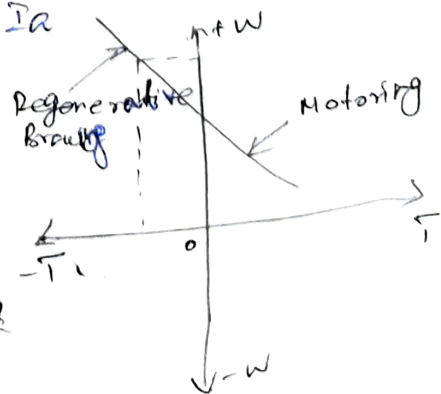 Ia
+W
Regenerative
Braking
Motoring
T
0
-T
-W